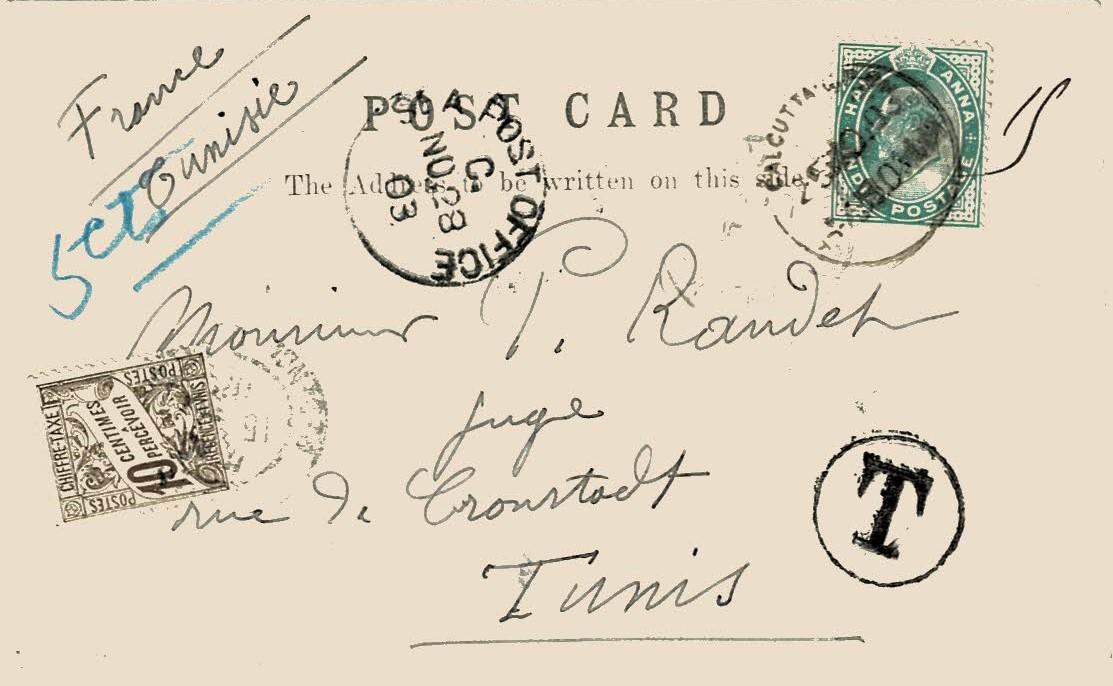 France
Tunisie
5 cts
POST CARD
The Address to be written on this side.
SEA POST OFFICE
C
NO 28
03
CALCUTTA
HALF ANNA
INDIA POSTAGE
Monsieur P. Raudet
juge
rue de Cronstadt
Tunis
T
POSTES
CHIFFRE-TAXE
10
CENTIMES
À
PERCEVOIR
REGENCE-TUNIS
POSTES